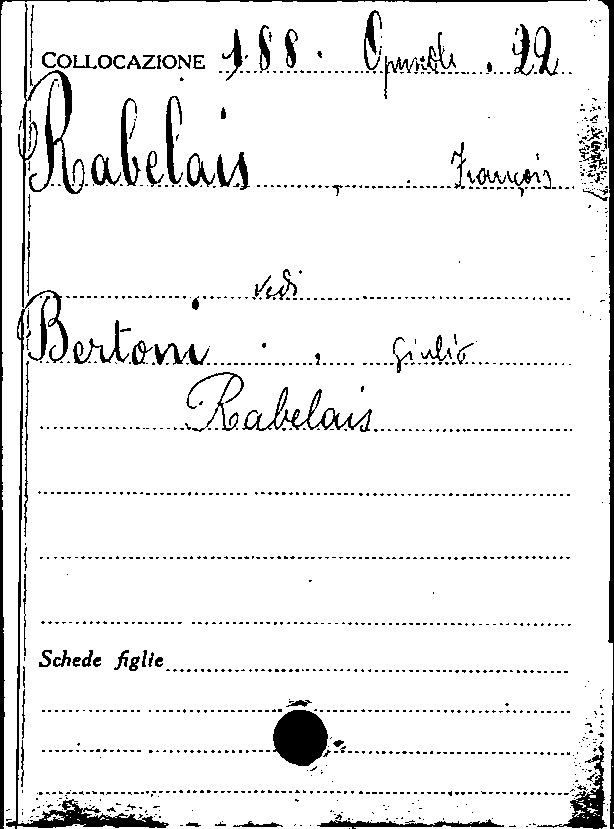 COLLOCAZIONE 188. Opuscoli. 22
Rabelais, François
vedi
Bertoni, Giulio
Rabelais
Schede figlie